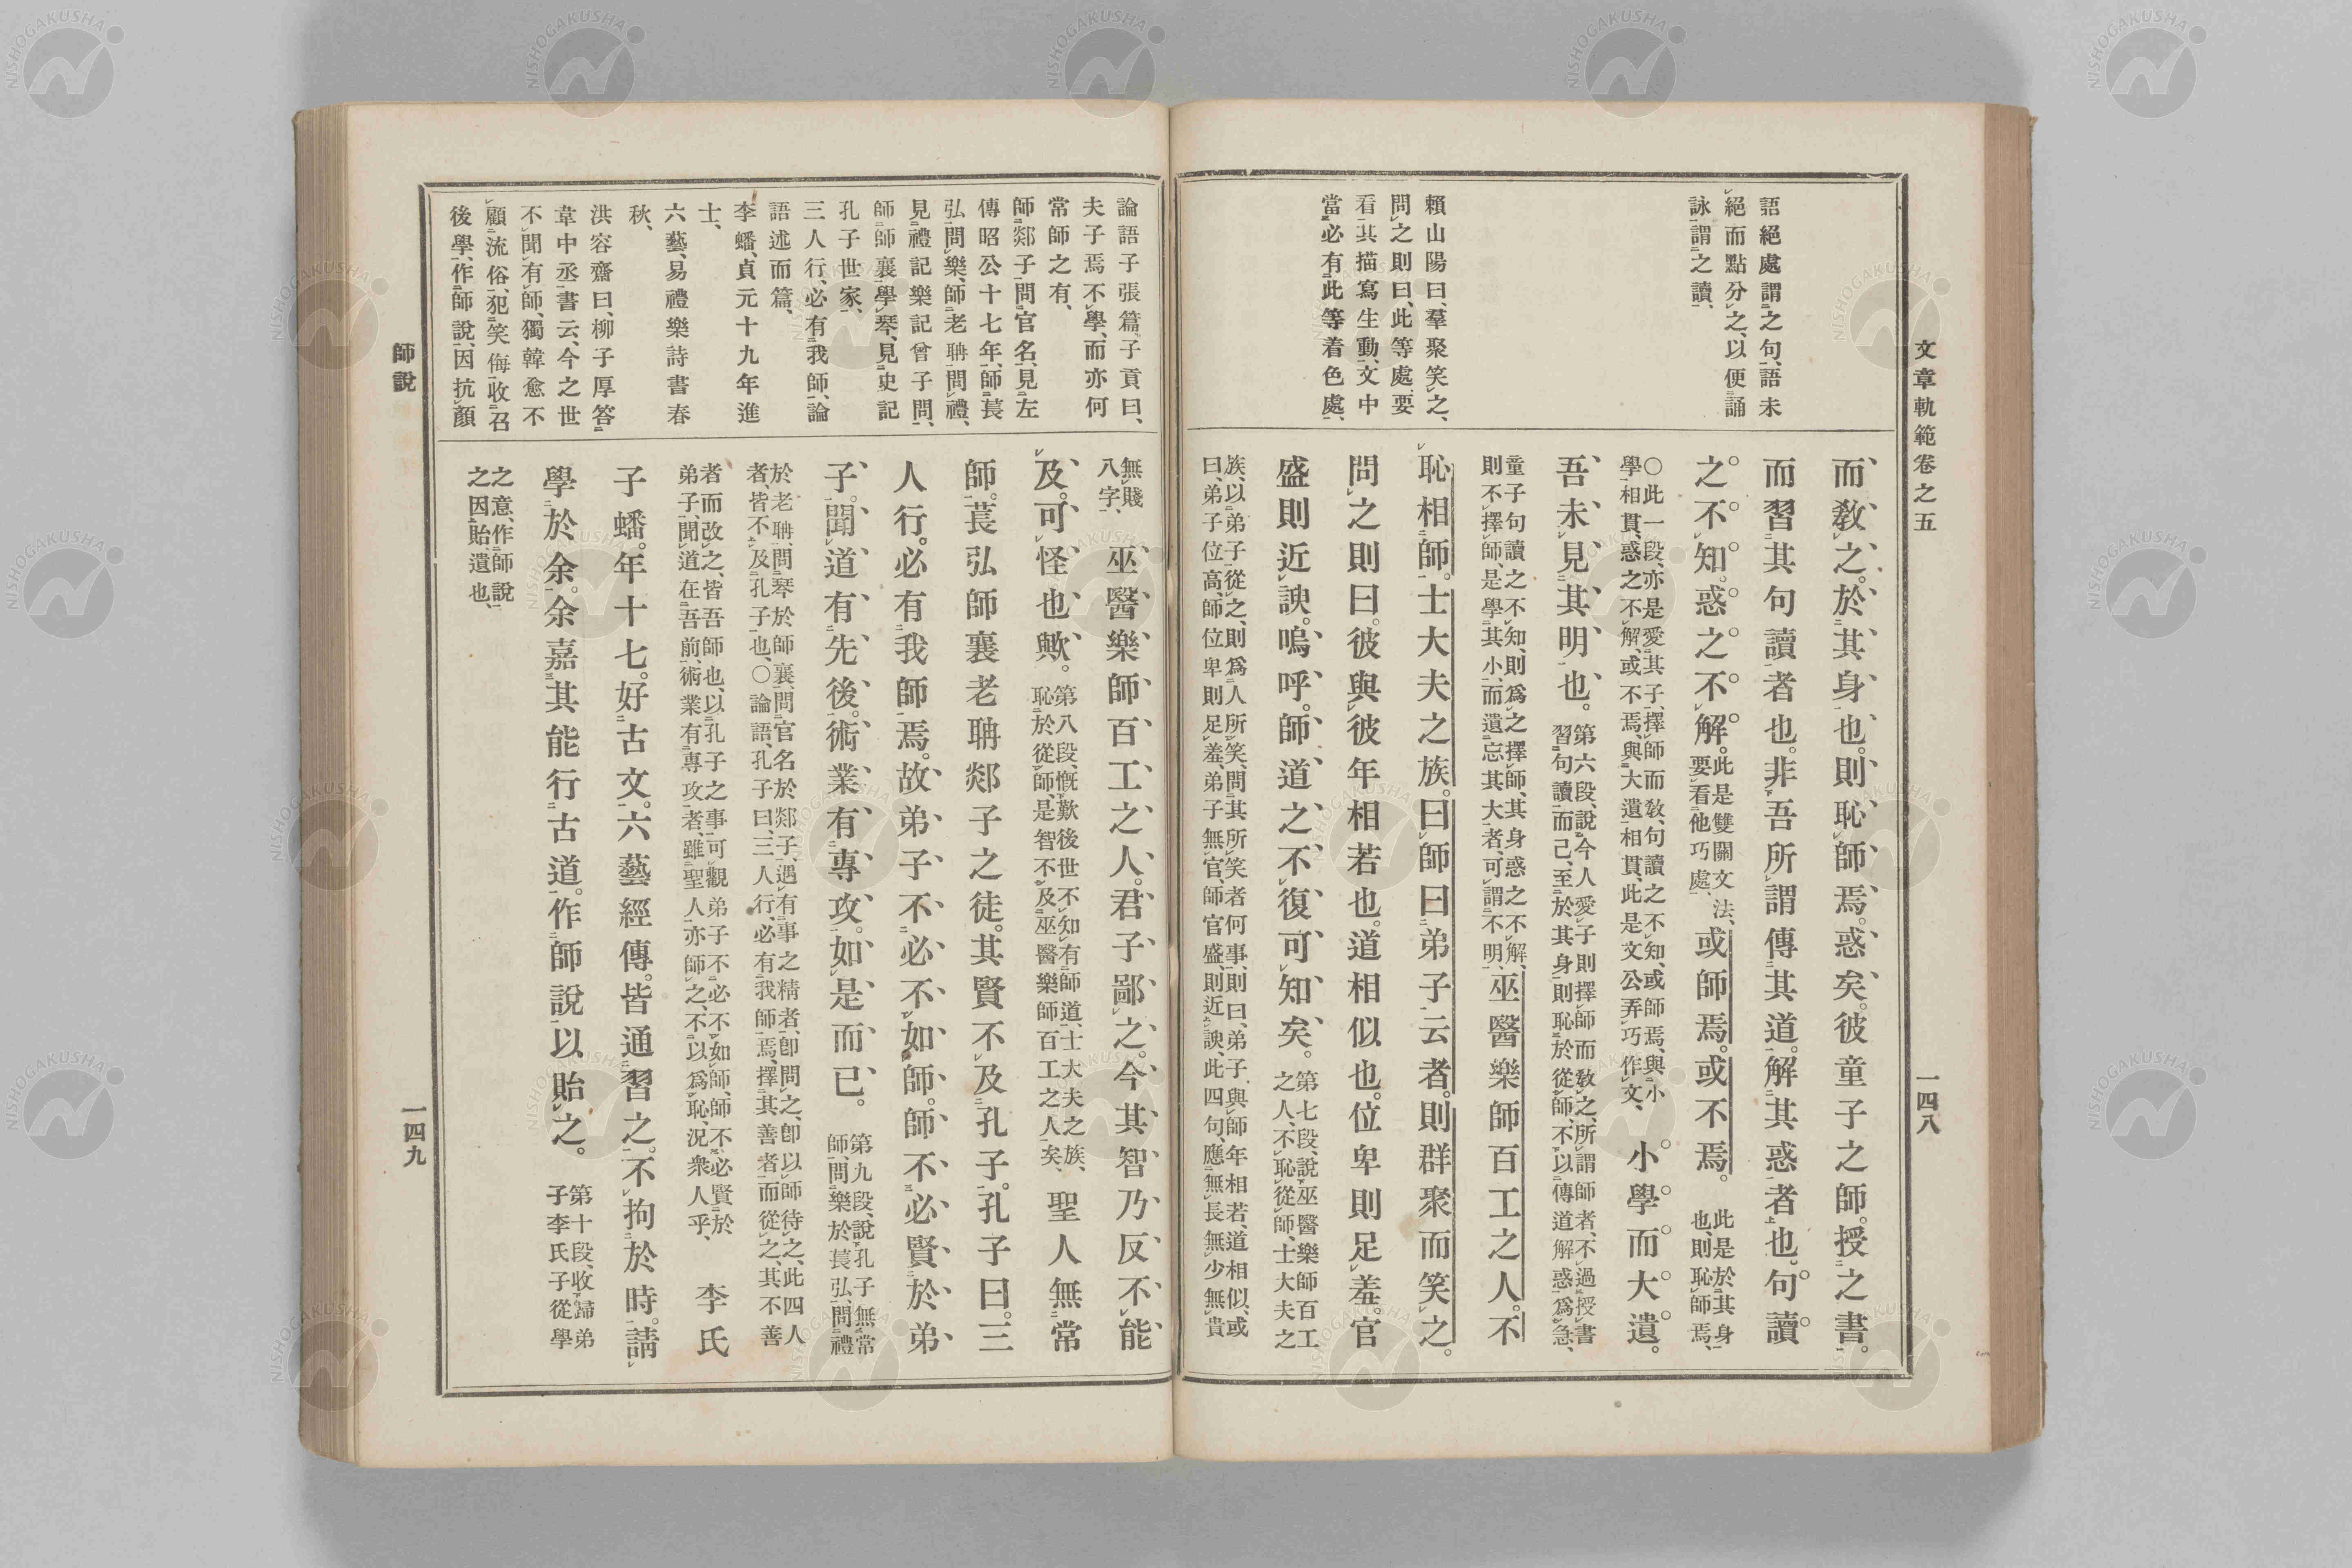 文章軌範卷之五
一四八
語絕處謂之句、語未
絕而點分之、以便誦
詠、謂之讀、
賴山陽曰、羣聚笑之、
問之則曰、此等處、要
看其描寫生動、文中
當必有此等着色處、
而敎之。於其身也。則恥師焉。惑矣。彼童子之師。授之書。
而習其句讀者也。非吾所謂傳其道。解其惑者也。句讀
之不知。惑之不解。此是雙關文法、要看他巧處、或師焉。或不焉。此是於其身也、則恥師焉、
〇此一段、亦是愛其子、擇師而敎、句讀之不知、或師焉、與小學相貫、惑之不解、或不焉、與大遺相貫、此是文公弄巧作文、小學而大遺。
吾未見其明也。第六段、說今人愛子則擇師而敎之、所謂師者、不過授書習句讀而已、至於其身則恥於從師、不以傳道解惑爲急、
童子句讀之不知、則爲之擇師、其身惑之不解、則不擇師、是學其小、而遺忘其大者、可謂不明、巫醫樂師百工之人。不
恥相師。士大夫之族。曰師曰弟子云者。則群聚而笑之。
問之則曰。彼與彼年相若也。道相似也。位卑則足羞。官
盛則近諛。嗚呼。師道之不復可知矣。第七段、說巫醫樂師百工之人、不恥從師、士大夫之
族、以弟子從之、則爲人所笑、問其所笑者何事、則曰、弟子與師年相若、道相似、或
曰、弟子位高、師位卑則足羞、弟子無官、師官盛、則近諛、此四句、應無長無少無貴
論語子張篇、子貢曰、
夫子焉不學、而亦何
常師之有、
師郯子、問官名、見左
傳昭公十七年、師萇
弘、問樂、師老聃、問禮、
見禮記樂記曾子問、
師師襄、學琴、見史記
孔子世家、
三人行、必有我師、論
語述而篇、
李蟠、貞元十九年進
士、
六藝、易禮樂詩書春
秋、
洪容齋曰、柳子厚答
韋中丞書云、今之世
不聞有師、獨韓愈不
顧流俗、犯笑侮、收召
後學、作師說、因抗顏
無賤八字、巫醫樂師百工之人。君子鄙之。今其智乃反不能
及。可怪也歟。第八段、慨歎後世不知有師道、士大夫之族、恥於從師、是智不及巫醫樂師百工之人矣、聖人無常
師。萇弘師襄老聃郯子之徒。其賢不及孔子。孔子曰。三
人行。必有我師焉。故弟子不必不如師。師不必賢於弟
子。聞道有先後。術業有專攻。如是而已。第九段、說孔子無常師、問樂於萇弘、問禮
於老聃、問琴於師襄、問官名於郯子、遇有事之精者、卽問之、卽以師待之、此四人
者、皆不及孔子也、〇論語、孔子曰、三人行、必有我師焉、擇其善者而從之、其不善
者而改之、皆吾師也、以孔子之事可觀弟子不必不如師、師不必賢於弟子、聞道在吾前、術業有專攻者、雖聖人亦師之、不以爲恥、況衆人乎、李氏
子蟠。年十七。好古文。六藝經傳。皆通習之。不拘於時。請
學於余。余嘉其能行古道。作師說以貽之。第十段、收歸弟子李氏子從學
之意、作師說
之因貽遺也、
師說
一四九